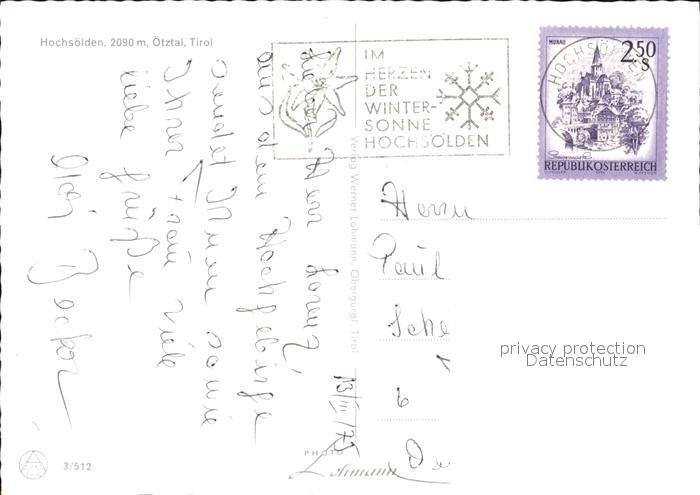 Hochsölden, 2090 m, Ötztal, Tirol
IM
HERZEN
DER
WINTER-
SONNE
HOCHSÖLDEN
HOCHSÖLDEN
MURAU
2.50
S
REPUBLIK ÖSTERREICH
Lieber Herr
aus dem Hochgebirge
sendet Ihnen sowie
Ihrer Frau viele
liebe Grüße
13/III/75
Verlag Werner Lohmann, Obergurgl, Tirol
Herrn
Paul
Sche
6
privacy protection
Datenschutz
PHOTO
Lohmann
3/512